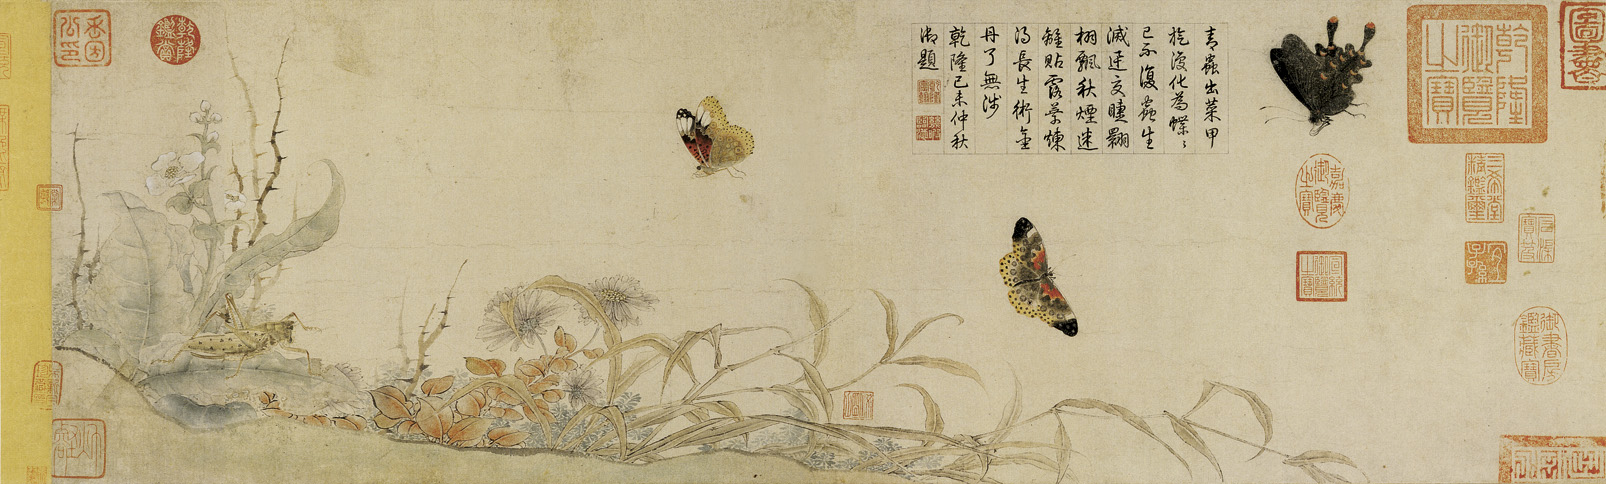 乾隆御覽之寶
三希堂精鑑璽
石渠寶笈
宜子孫
御書房鑑藏寶
嘉慶御覽之寶
宣統御覽之寶
青蟲出菜甲
旋復化為蝶〻
已不復蟲生
滅迅交睫翩
栩飄秋煙迷
離貼露葉煉
得長生術金
丹了無涉
乾隆己未仲秋
御題
乾隆鑑賞